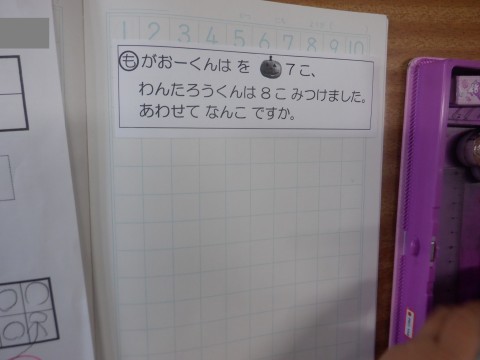 1 2 3 4 5 6 7 8 9 10
も がおーくんは を 7こ、
わんたろうくんは 8こ みつけました。
あわせて なんこ ですか。